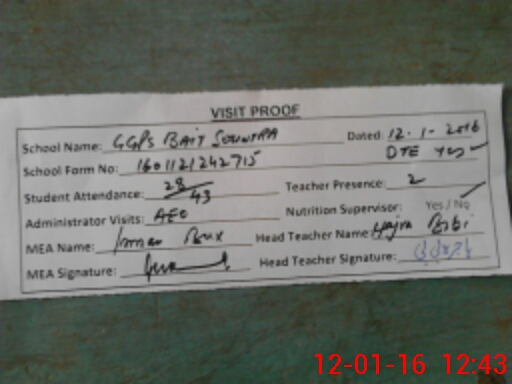 VISIT PROOF
School Name: GGPS BAIT SOUNTRA Dated: 12-1-2016
School Form No: 1601121242715 DTE Yes
Student Attendance: 28/43 Teacher Presence: 2
Administrator Visits: AEO Nutrition Supervisor: Yes / No
MEA Name: Imran Bux Head Teacher Name Hajra Bibi
MEA Signature: Head Teacher Signature:
12-01-16 12:43